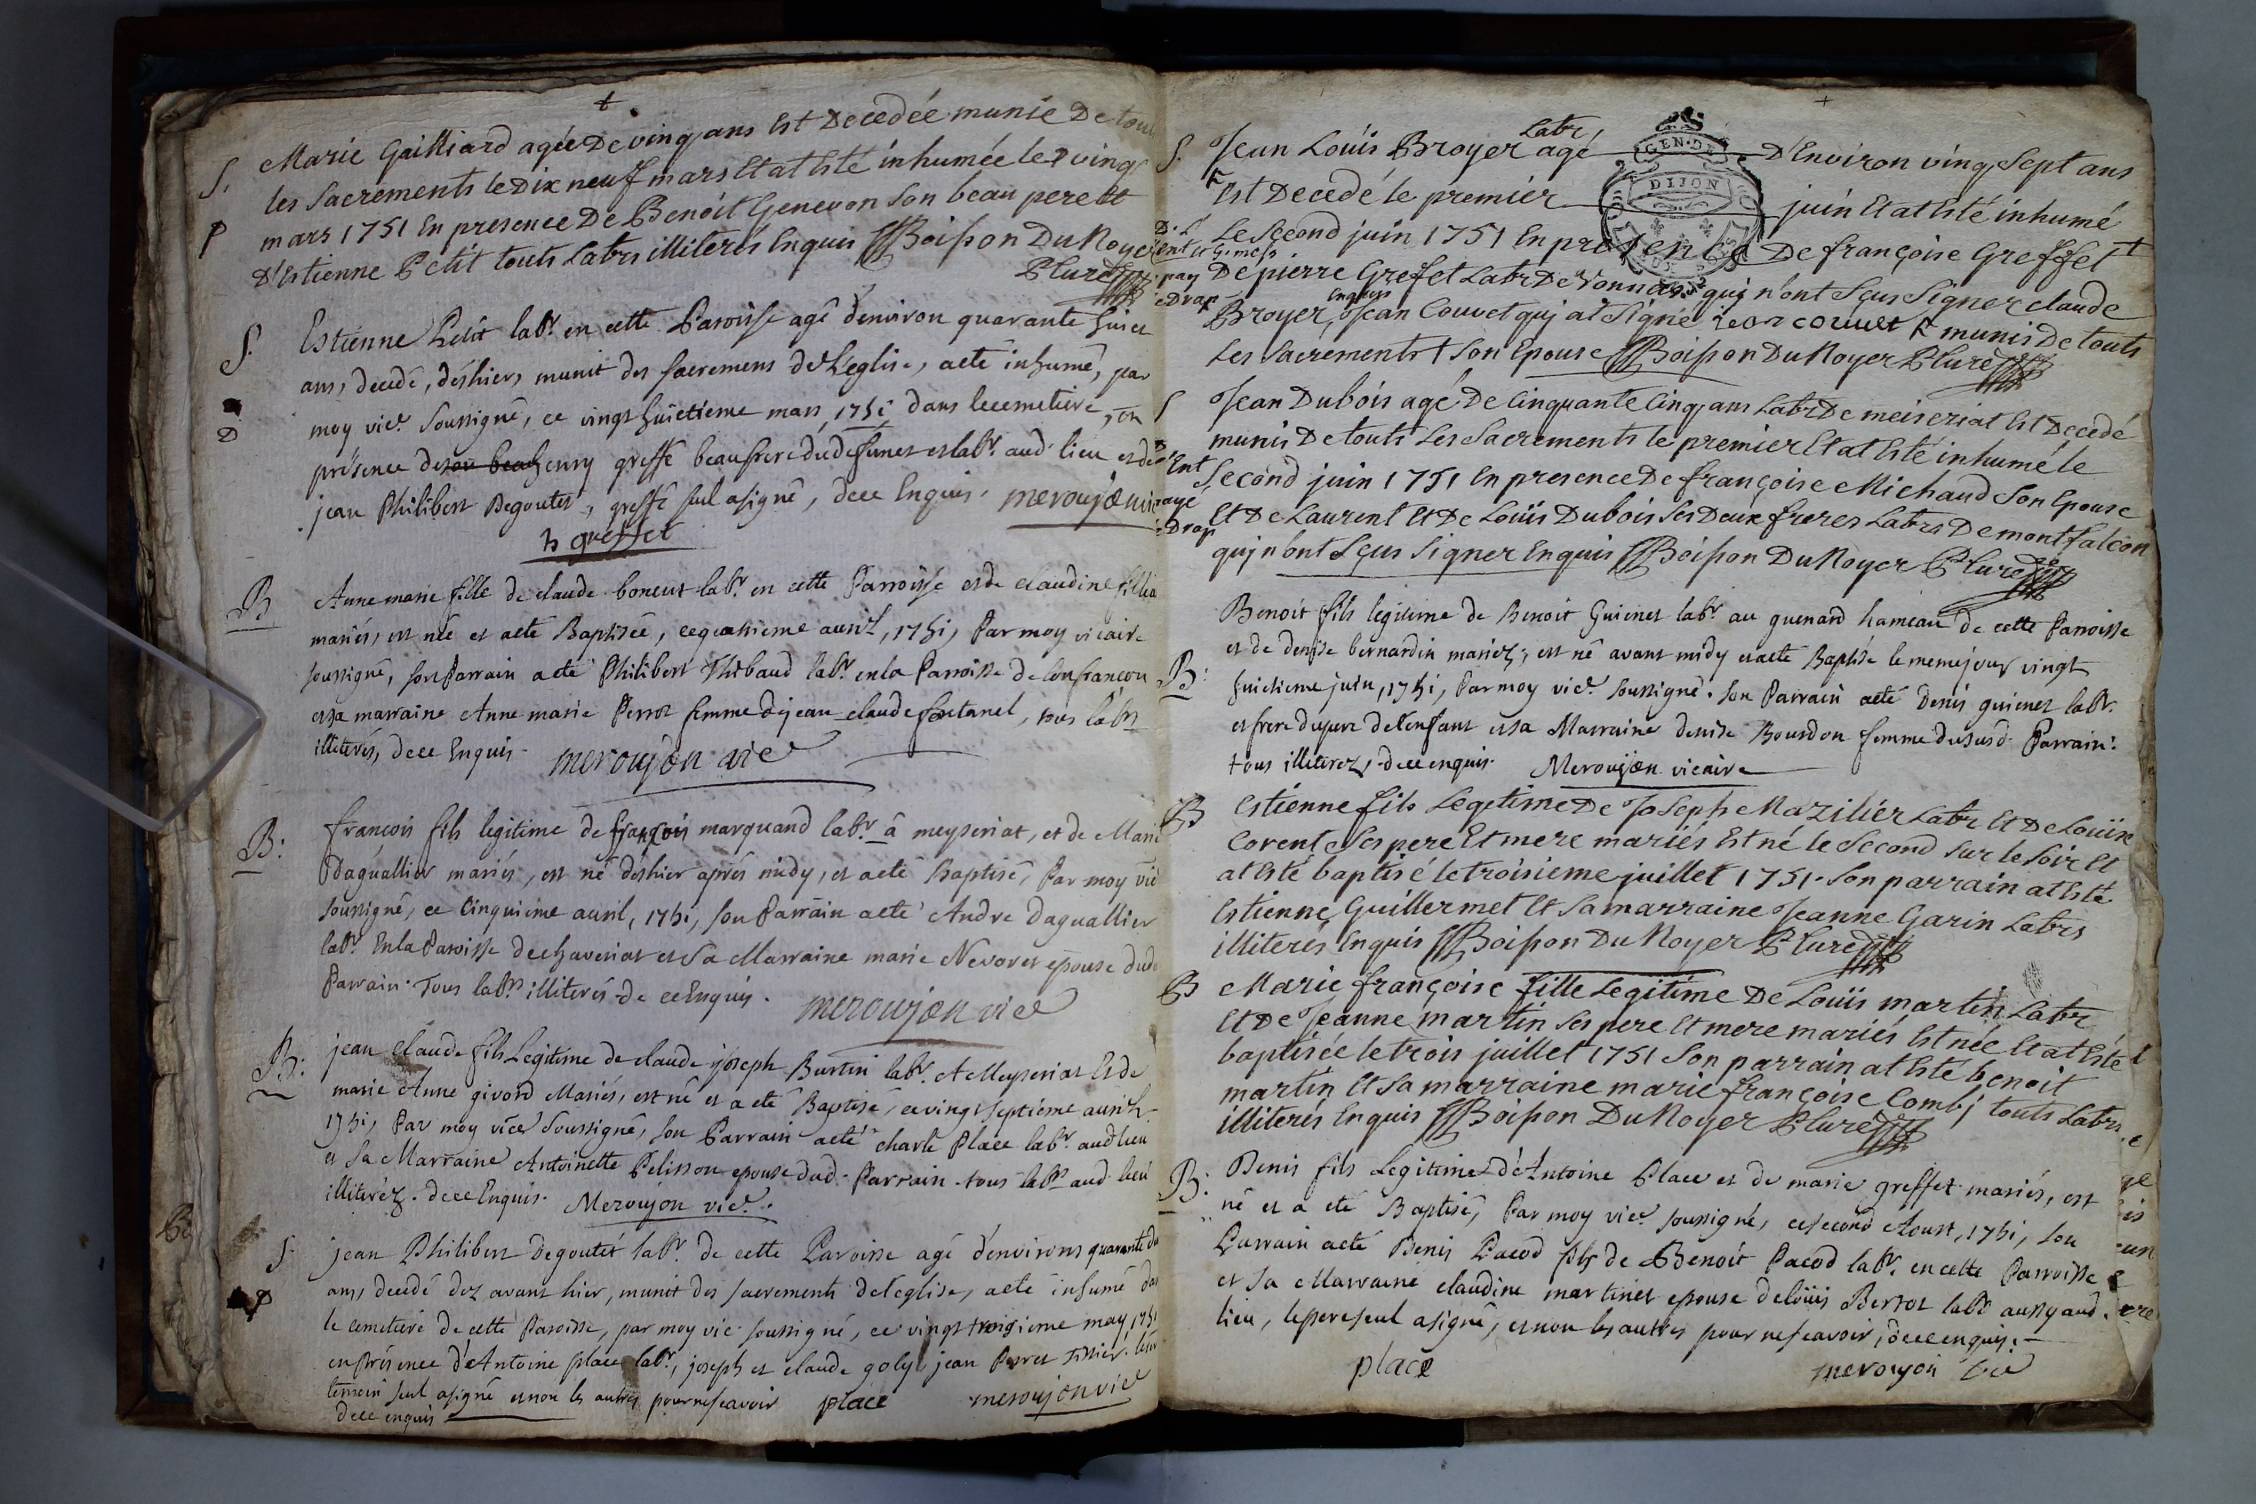 +
S. Marie Gailliard agée De vingt ans Est Decedée munie De tout
les Sacrements le Dix neuf mars Et at Esté inhumée le vingt
P mars 1751 En presence De Benoit Genevon Son beau pere Et
D'Estienne Petit touts Labrs illiterés Enquis Boisson Du Noyer
P Curé
S. Estienne Petit labr. en cette Paroisse agé denviron quarante huict
ans, decedé, déshier, munit des sacremens de L'eglise, aeté inhumé, par
D moy vice. Soussigné, ce vingt huictieme mars 1751 dans le cemetiere, en
présence de son beau henry greffé beaufrere dud defunct et labr. aud. lieu et de
jean Philibert Degoutet, greffé seul asigné, dece Enquis. meroujon vice
h greffet
B Anne marie fille de claude boncut labr. en cette Parroisse et de claudine
mariés, est née et aeté Baptisée, ce quatrieme auril, 1751, Par moy vicaire
soussigné, son Parrain aeté Philibert Thibaud labr. en la Parroisse de Confrancon
et sa marraine Anne marie Perrot femme dejean claude fontanel, tous labrs
illiterés, dece Enquis. meroujon vice
B: francois fils legitime de francois marquand labr. à meyseriat, et de Marie
Daguallier mariés, est né déshier aprés midy, et aeté Baptisé, Par moy vice
soussigné, ce Cinquieme auril, 1751, son Parrain aeté Andre Daguallier
labr. En la Paroisse de chaveriat et Sa Marraine marie Nevoret epouse dud.
Parrain. Tous labrs illiterés de ce Enquis. meroujon vice
B: jean claude fils Legitime de claude joseph Burtin labr. A Meyseriat Et de
marie Anne givord Mariés, est né et a eté Baptisé, ce vingt septieme auril
1751, Par moy vice Soussigné, son Parrain aeté charle Place labr. aud lieu
et Sa Marraine Antoinette Pelisson epouse dud. Parrain. tous labrs aud. lieu
illiteréz. dece Enquis. Meroujon vice.
S. jean Philibert Degoutet labr. de cette Paroisse agé denvirons quarante
P ans, decedé dez avant hier, munit des sacrements de leglise, aeté inhumé
le cemetiere de cette Paroisse, par moy vic. soussigné, ce vingt troisieme may, 1751
en présence d'Antoine place labr., joseph et claude golyl jean Perret
temoin seul asigné et non les autres pour ne scavoir place meroujon vice
dece enquis
+
S. Jean Loüis Broyer Labr, agé D'Environ ving Sept ans
Est Decedé le premier juin Et at Esté inhumé
GEN. DE DIJON
Le Second juin 1751 En presence De françoise Greffet +
De pierre Grefet Labr De Vonnas quj n'ont Sçus Signer claude
Broyer, Enquis Jean Couvet quj at Signé jean couuet munis De touts
Les Sacrements + Son Epouse Boisson Du Noyer P Curé
S Jean Dubois agé De Cinquante Cinq ans Labr De meiseriat Est Decedé
munis De touts Les Sacrements le premier Et at Esté inhumé le
Second juin 1751 En presence De françoise Michaud Son Epouse
Et De Laurent Et De Loüis Dubois Ses Deux freres Labrs De montfalcon
quj n'ont Sçus Signer Enquis Boisson Du Noyer P Curé
Benoit fils legitime de Benoit Guienet labr. au guenard hameau de cette Parroisse
et de denise bernardin mariez, est né avant midy et aeté Baptisé le meme jour vingt
B: huictieme juin, 1751, Par moy vice. soussigné. son Parrain aeté Denis guienet labr.
et frere du pere de l'enfant et sa Marraine denise Bourdon femme dususd. Parrain.
tous illiterez, dece enquis. Meroujon vicaire
B Estienne fils Legetime De Joseph Mazilier Labr Et De Loüise
Corent Ses pere Et mere mariés Est né le Second Sur le Soir Et
at Esté baptisé le troisieme juillet 1751. Son parrain at Esté
Estienne Guillermet Et Sa marraine Jeanne Garin Labrs
illiterés Enquis Boisson Du Noyer P Curé
B Marie françoise fille Legitime De Loüis martin Labr
Et De Jeanne martin Ses pere Et mere mariés Est née Et at Esté
baptisée le trois juillet 1751 Son parrain at Esté benoit
martin Et Sa marraine marie françoise Combj touts Labrs
illiterés Enquis Boisson Du Noyer P Curé
B: Denis fils Legitime d'Antoine Place et de marie greffet mariés, est
né et a eté Baptisé, Par moy vice soussigné, ce second Aoust, 1751, son
Parrain aeté Denis Pacod fils de Benoit Pacod labr. en cette Parroisse
et Sa Marraine claudine martinet epouse deloüis Berrot labr aussy aud.
lieu, le pere seul asigné, et non les autres pour ne scavoir, dece enquis.
place meroujon vice